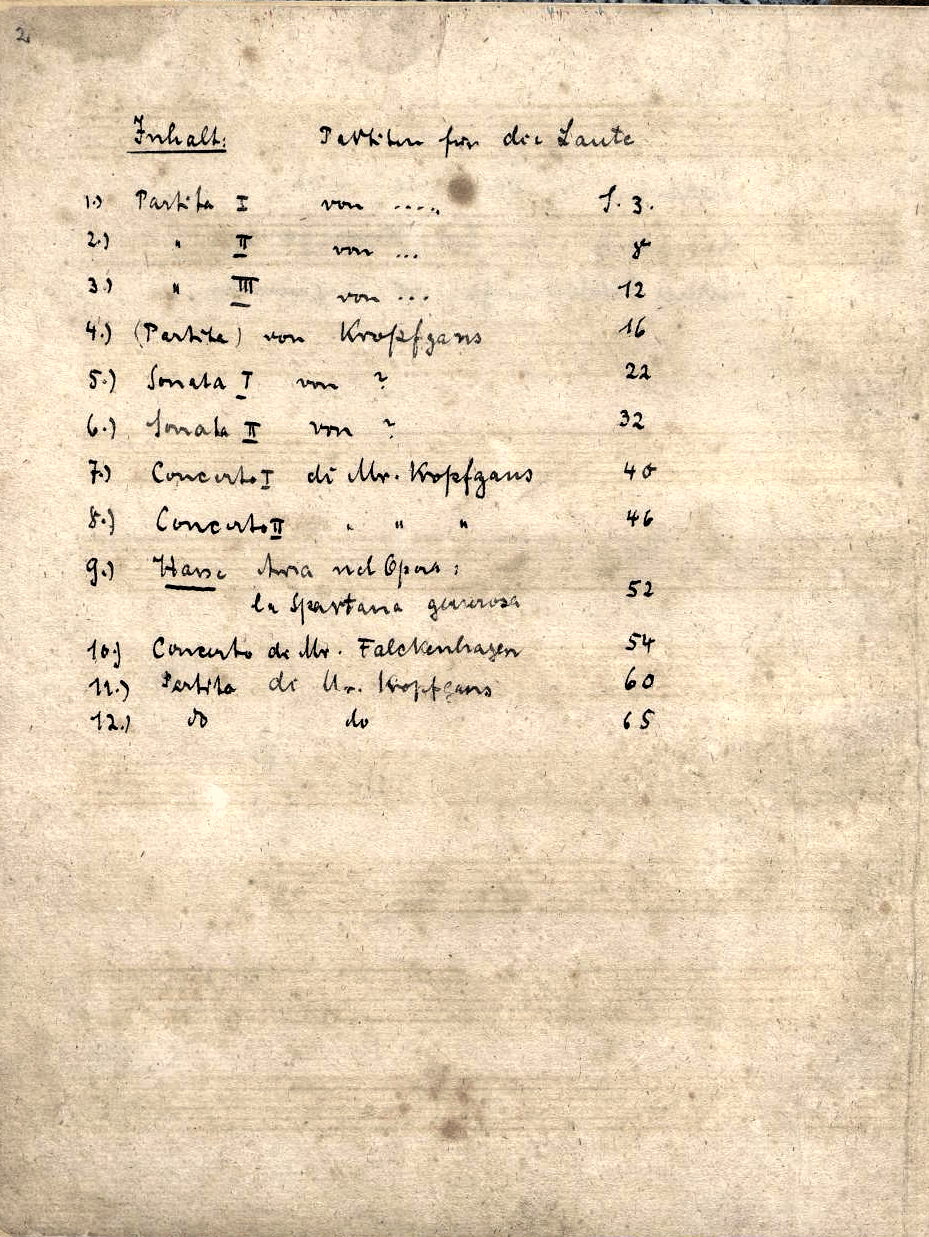 2
Inhalt: Partiten für die Laute
1.) Partita I von ..... S. 3.
2.) " II von ... 8
3.) " III von ... 12
4.) (Partita) von Kropfgans 16
5.) Sonata I von ? 22
6.) Sonata II von ? 32
7.) Concerto I di Mr. Kropfgans 40
8.) Concerto II " " " 46
9.) Hasse Aria nel Opera :
la Spartana generosa 52
10.) Concerto di Mr. Falckenhagen 54
11.) Partita di Mr. Kropfgans 60
12.) do do 65